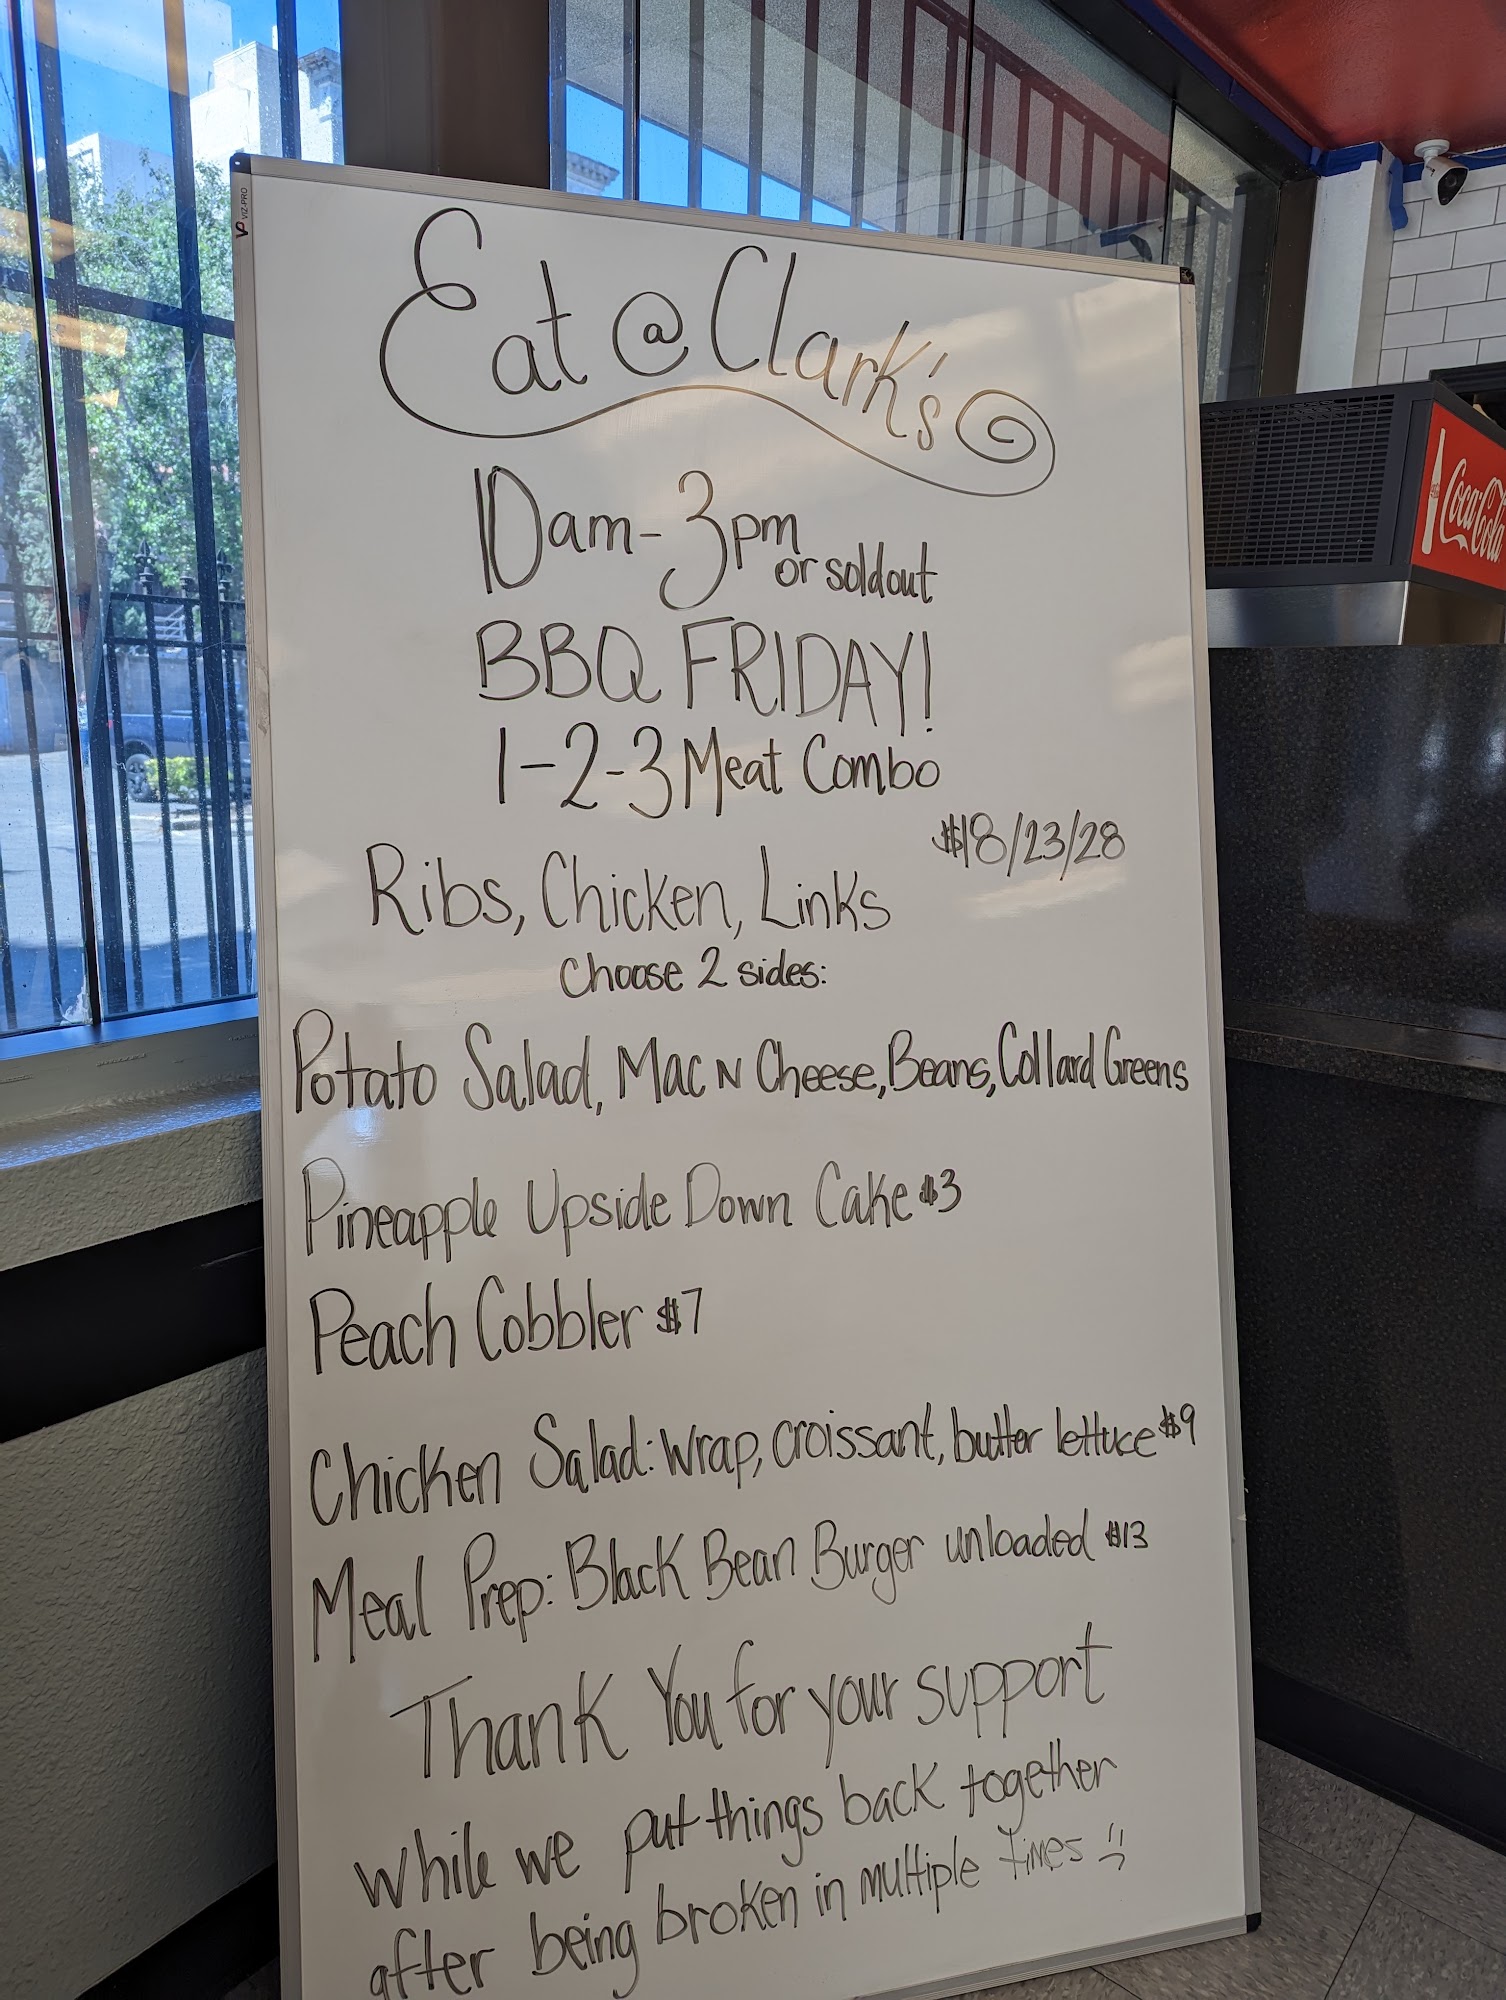 VIZ-PRO
Eat @ Clark's
10am-3pm
or soldout
BBQ FRIDAY!
1-2-3 Meat Combo
$18/23/28
Ribs, Chicken, Links
Choose 2 sides:
Potato Salad, Mac N Cheese, Beans, Collard Greens
Pineapple Upside Down Cake $3
Peach Cobbler $7
Chicken Salad: Wrap, croissant, butter lettuce $9
Meal Prep: Black Bean Burger unloaded $13
Thank You for your support
while we put things back together
after being broken in multiple times
Coca-Cola